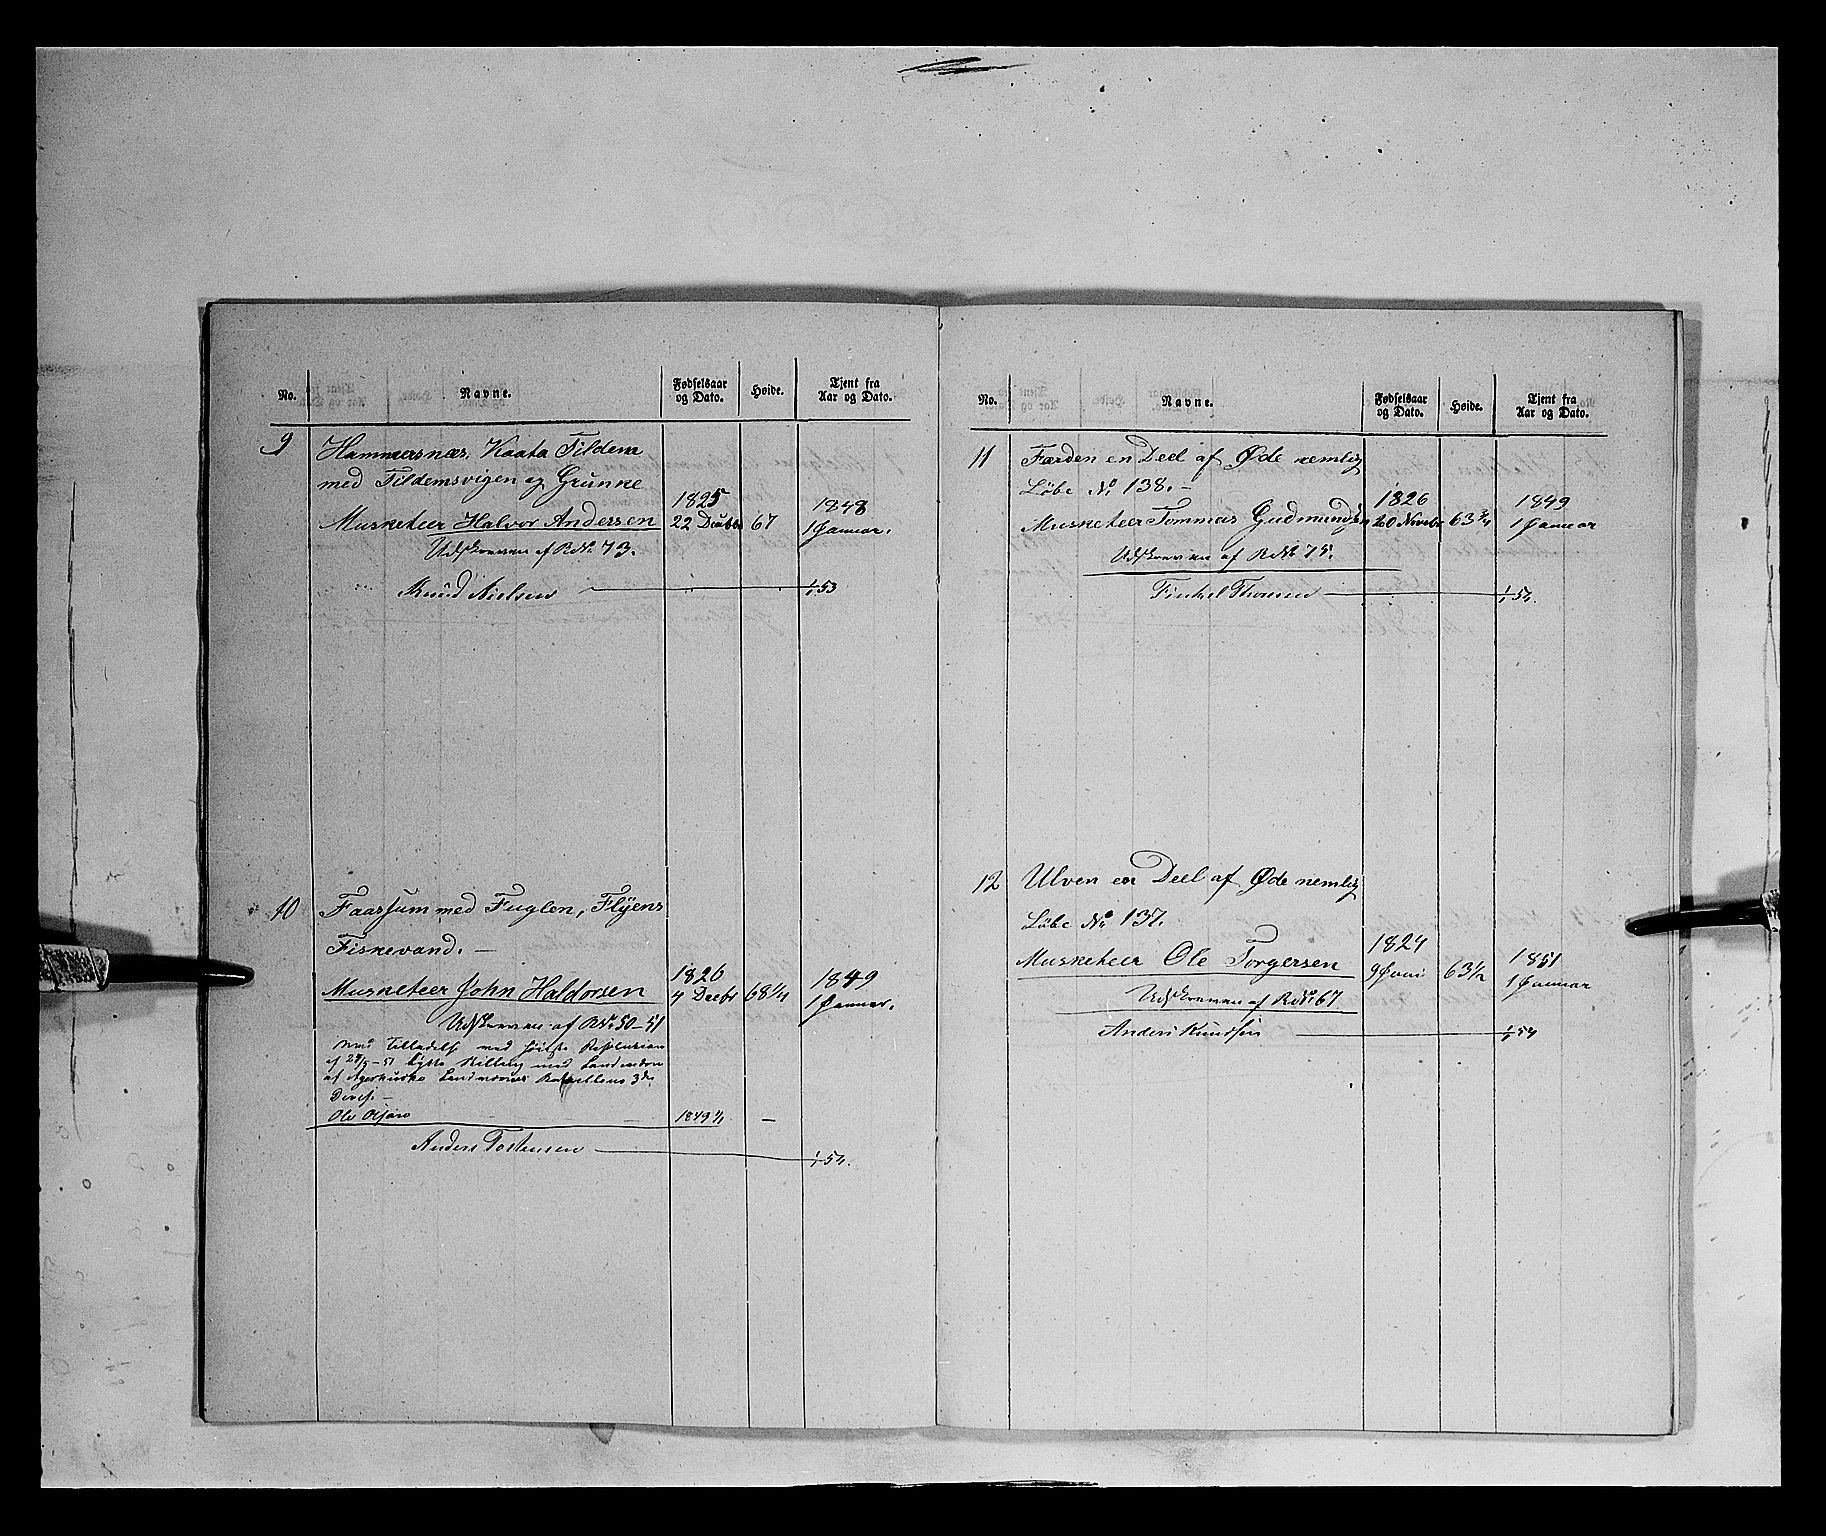 No. Navne. Fødselsaar og Dato. Høide. Tjent fra Aar og Dato.
9 Hammersnæs, Kaata Tildem
med Tildemsvigen og Grunke
Musketeer Halvor Andersen 1825 22 Decbr 67 1848 1 Januar.
Udskreven af R.No. 73.
Knud Nielsen " " 1/1 53
10 Faassum med Fuglen, Flÿens
Fiskevand. —
Musketeer John Haldorsen 1826 4 Decbr 68 1/4 1849 1 Januar.
Udskreven af R.No. 50–51
Med Tilladelse med Resolution
af –51 bytte Rilleg med Landværn
af Agerhusko Landværns Batallions 3die
—
Ole 1849 1/1 —
Anders Tostensen 1/1 54.
No. Navne. Fødselsaar og Dato. Høide. Tjent fra Aar og Dato.
11 Færden en Deel af Øde nemlig
Løbe No. 138. —
Musketeer Tommas Gudmundsen 1826 20 Novebr 63 3/4 1849 1 Januar
Udskreven af R.No. 75.
Finkel Thomsen 1/1 54.
12 Ulven en Deel af Øde nemlig
Løbe No. 137.
Musketeer Ole Torgersen 1824 9 Juni 63 1/2 1851 1 Januar
Udskreven af R.No. 67
Anders Knudsen 1/1 54